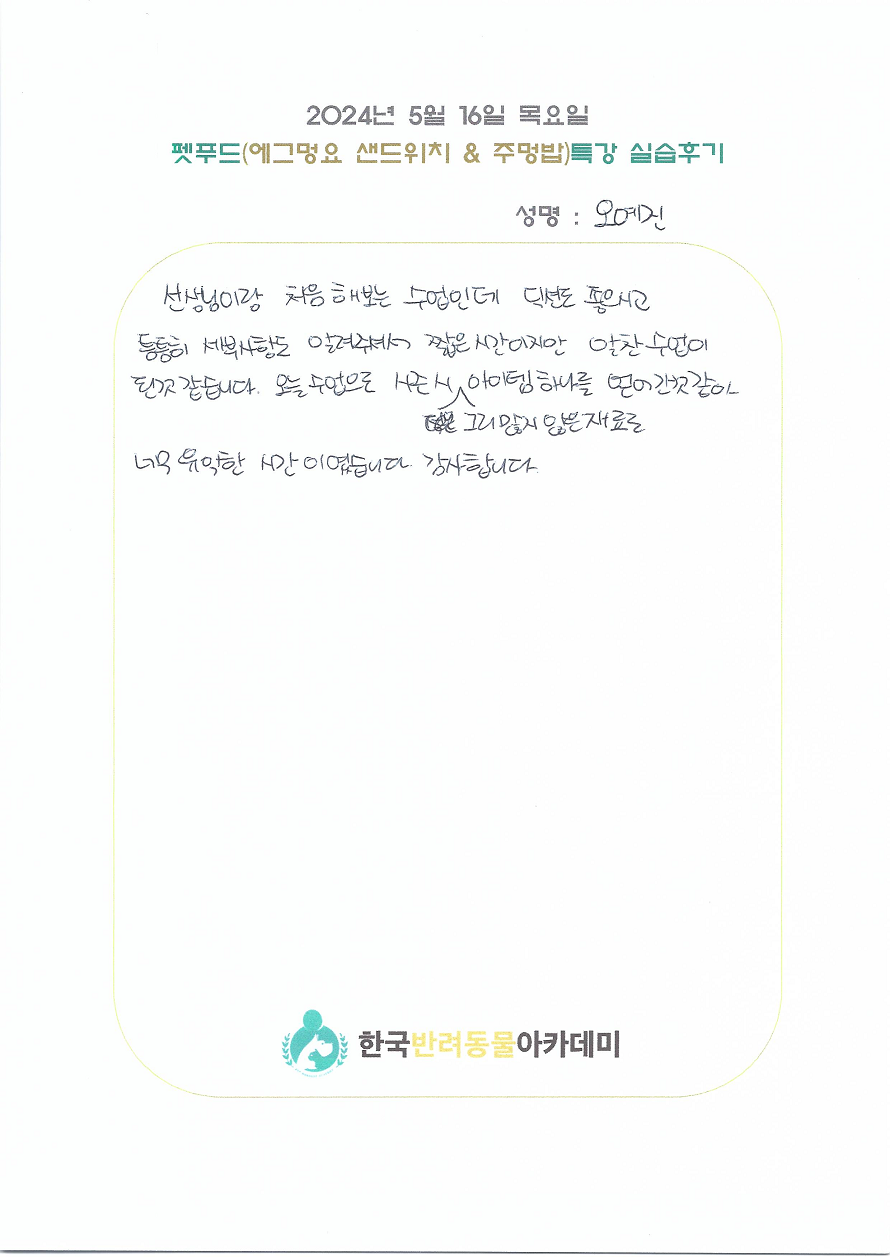 2024년 5월 16일 목요일
펫푸드(에그멍요 샌드위치 & 주멍밥)특강 실습후기
성명 : 오예진
선생님이랑 처음 해보는 수업인데 딕션도 좋으시고
틈틈히 세부사항도 알려주셔서 짧은 시간이지만 알찬 수업이
된것 같습니다. 오늘 수업으로 시즌시 아이템 하나를 얻어 간것 같아
그리 많지 않은 재료로
너무 유익한 시간이였습니다. 감사합니다.
한국반려동물아카데미